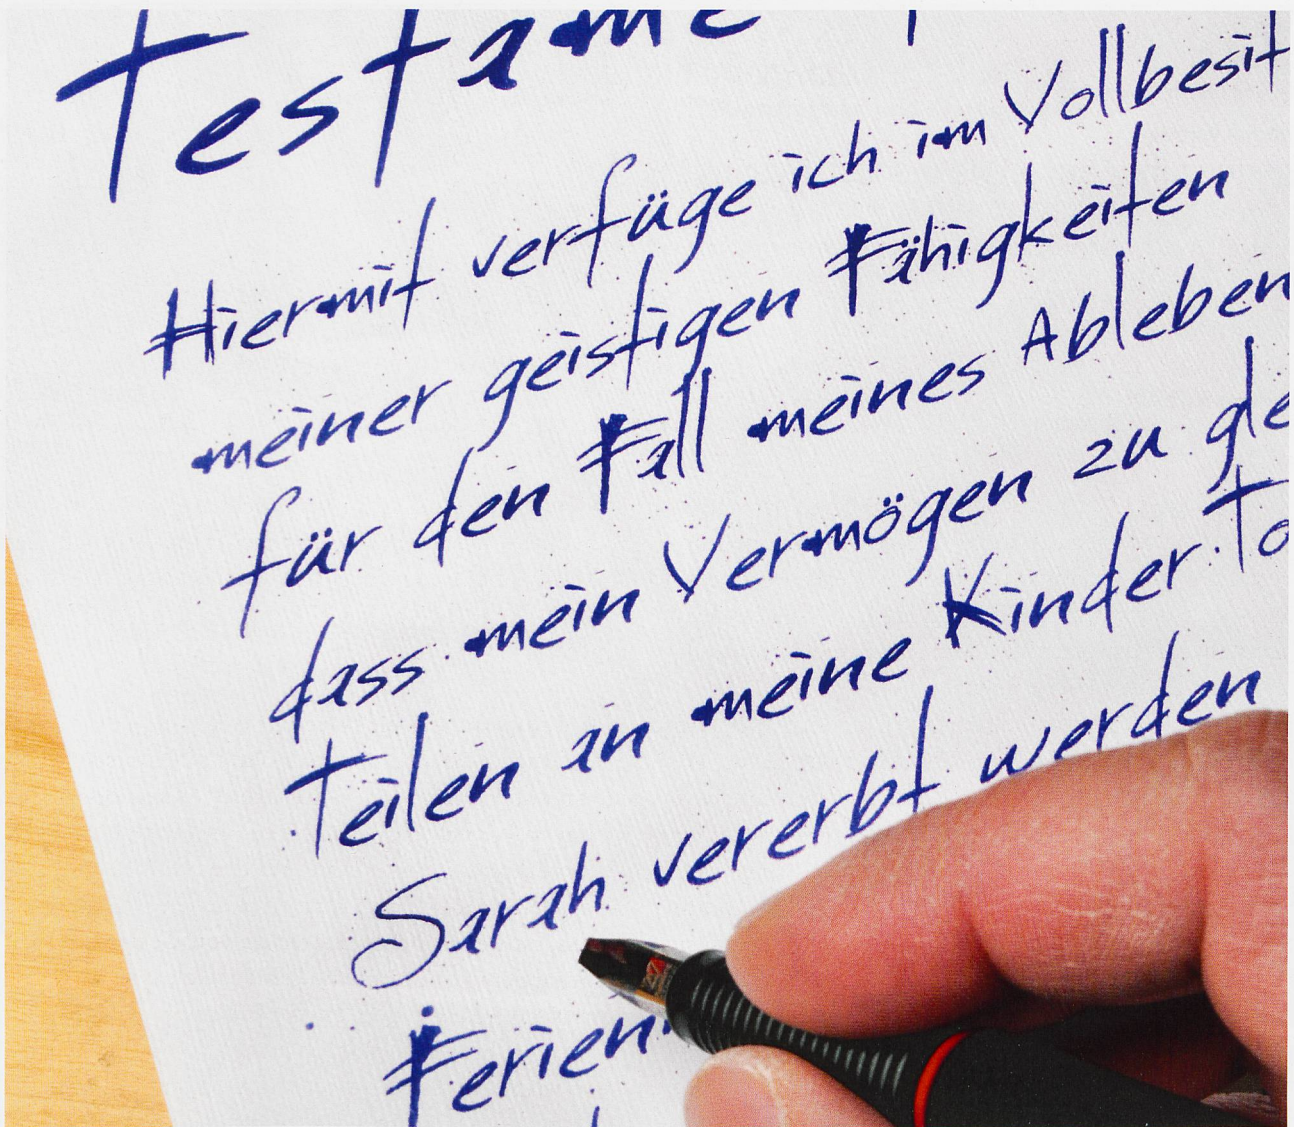 Testame
Hiermit verfüge ich im Vollbesit
meiner geistigen Fähigkeiten
für den Fall meines Ableben
dass mein Vermögen zu gle
Teilen an meine Kinder To
Sarah vererbt werden
Ferien